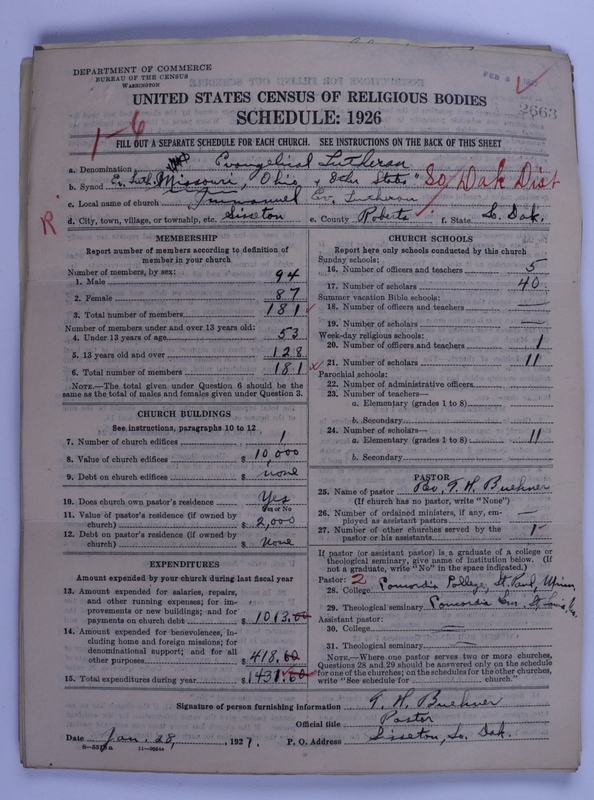 DEPARTMENT OF COMMERCE
BUREAU OF THE CENSUS
WASHINGTON
FEB
2663
UNITED STATES CENSUS OF RELIGIOUS BODIES
SCHEDULE: 1926
1-6
FILL OUT A SEPARATE SCHEDULE FOR EACH CHURCH. SEE INSTRUCTIONS ON THE BACK OF THIS SHEET
a. Denomination Evangelical Lutheran
b. Synod Ev. Luth. Missouri, Ohio & other States" So Dak Dist
c. Local name of church Immanuel Ev. Lutheran
R.
d. City, town, village, or township, etc. Sisseton e. County Roberts f. State So. Dak.
MEMBERSHIP
Report number of members according to definition of
member in your church
Number of members, by sex:
1. Male 94
2. Female 87
3. Total number of members 181
Number of members under and over 13 years old:
4. Under 13 years of age 53
5. 13 years old and over 128
6. Total number of members 181
NOTE.—The total given under Question 6 should be the
same as the total of males and females given under Question 3.
CHURCH BUILDINGS
See instructions, paragraphs 10 to 12
7. Number of church edifices 1
8. Value of church edifices $ 10,000
9. Debt on church edifices $ none
10. Does church own pastor's residence Yes
Yes or No
11. Value of pastor's residence (if owned by
church) $ 2,000
12. Debt on pastor's residence (if owned by
church) $ None
EXPENDITURES
Amount expended by your church during last fiscal year
13. Amount expended for salaries, repairs,
and other running expenses; for im-
provements or new buildings; and for
payments on church debt $ 1013.00
14. Amount expended for benevolences, in-
cluding home and foreign missions; for
denominational support; and for all
other purposes $ 418.60
15. Total expenditures during year $ 1431.60
CHURCH SCHOOLS
Report here only schools conducted by this church
Sunday schools:
16. Number of officers and teachers 5
17. Number of scholars 40
Summer vacation Bible schools:
18. Number of officers and teachers —
19. Number of scholars —
Week-day religious schools:
20. Number of officers and teachers 1
21. Number of scholars 11
Parochial schools:
22. Number of administrative officers
23. Number of teachers—
a. Elementary (grades 1 to 8)
b. Secondary
24. Number of scholars—
a. Elementary (grades 1 to 8) 11
b. Secondary
PASTOR
25. Name of pastor Rev. T. H. Buehner
(If church has no pastor, write "None")
26. Number of ordained ministers, if any, em-
ployed as assistant pastors —
27. Number of other churches served by the
pastor or his assistants 1
If pastor (or assistant pastor) is a graduate of a college or
theological seminary, give name of institution below. (If
not a graduate, write "No" in the space indicated.)
Pastor: 2
28. College Concordia College, St. Paul, Minn
29. Theological seminary Concordia Sem. St Louis, Mo.
Assistant pastor:
30. College —
31. Theological seminary —
NOTE.—Where one pastor serves two or more churches,
Questions 28 and 29 should be answered only on the schedule
for one of the churches; on the schedules for the other churches,
write "See schedule for church."
Signature of person furnishing information T. H. Buehner
Official title Pastor
Date Jan. 28, , 1927. P. O. Address Sisseton, So. Dak.